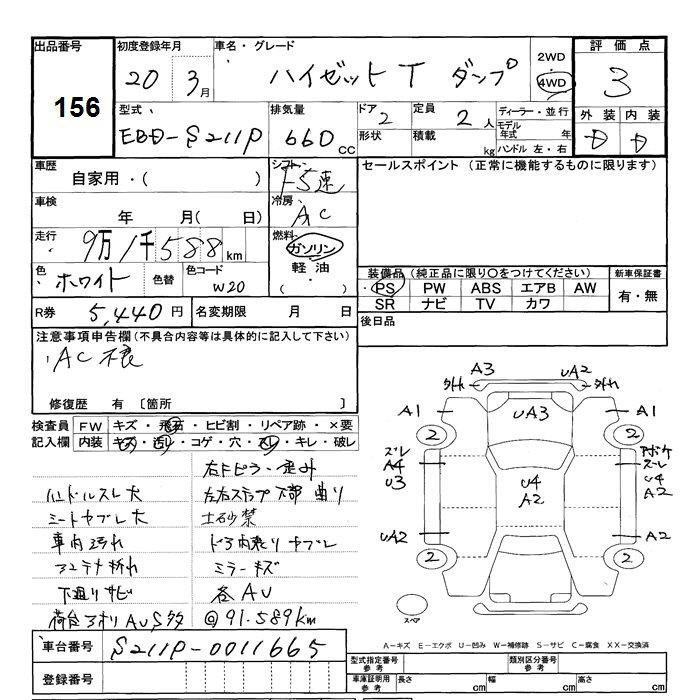 出品番号
156
初度登録年月
20 3月
車名・グレード
ハイゼットT ダンプ
2WD
4WD
評価点
3
型式
EBD-S211P
排気量
660 cc
ドア
2
形状
定員
2人
積載
kg
ディーラー・並行
モデル年式 年
ハンドル 左・右
外装 内装
D D
車歴
自家用・( )
シフト
F5速
セールスポイント(正常に機能するものに限ります)
車検
年 月( 日)
冷房
AC
走行
9万1千588km
燃料
ガソリン
軽油
( )
色
ホワイト
色替
色コード
W20
装備品(純正品に限り○をつけてください)
PS PW ABS エアB AW
SR ナビ TV カワ
新車保証書
有・無
R券 5,440円
名変期限 月 日
後日品
注意事項申告欄(不具合内容等は具体的に記入して下さい)
AC不良
修復歴 有 [箇所 ]
検査員記入欄
FW キズ・飛石・ヒビ割・リペア跡・×要
内装 キズ・汚れ・コゲ・穴・スレ・キレ・破レ
右Fピラー歪み
ハンドルスレ大
左右ステップ下部曲り
シートヤブレ大
土砂禁
車内汚れ
ドア内張りヤブレ
アンテナ折れ
ミラーキズ
下廻りサビ
各AU
荷台アオリAUS多
@91.589km
A3
UA2
外れ
外れ
A1
UA3
A1
2
2
ズレ
A4
U3
U4
A2
ズレ
U4
A2
UA2
A2
2
2
スペア
A-キズ E-エクボ U-凹み W-補修跡 S-サビ C-腐食 XX-交換済
車台番号
S211P-0011665
登録番号
型式指定番号 参考
類別区分番号 参考
車庫証明用 参考
長さ cm
幅 cm
高さ cm